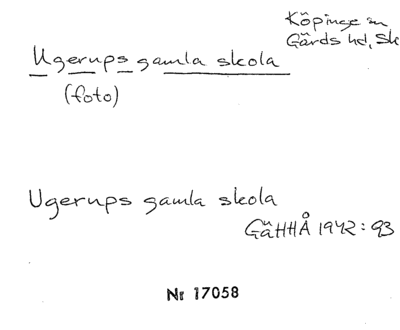 Köpinge sn
Gärds hd, Sk
Ugerups gamla skola
(foto)
Ugerups gamla skola
GäHHÅ 1942: 93
Nr 17058